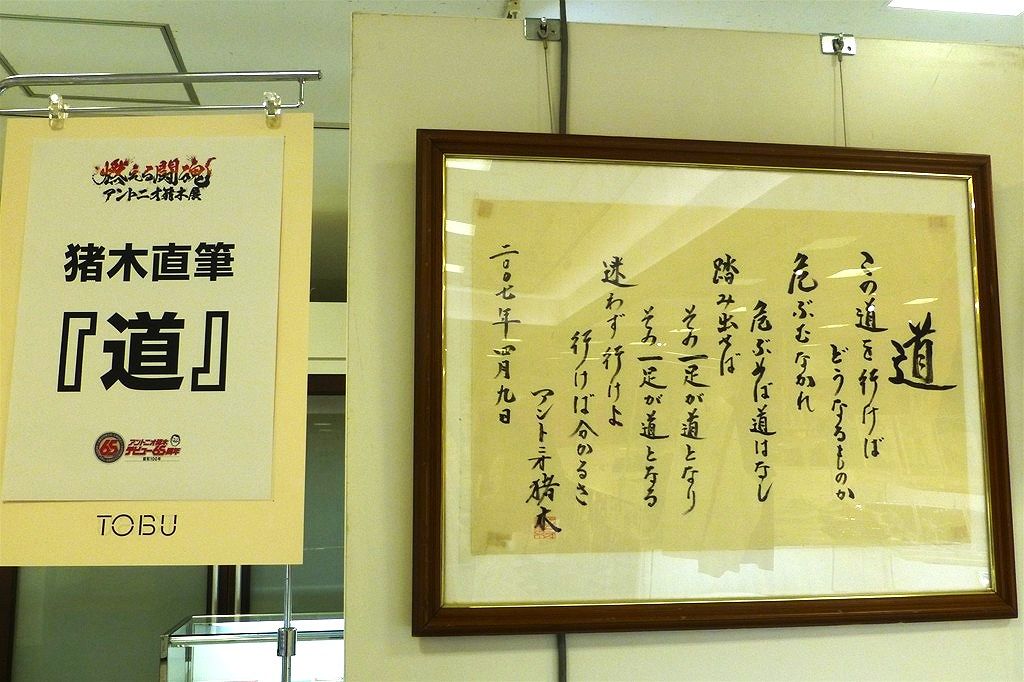 燃える闘魂
アントニオ猪木展
猪木直筆
『道』
65
アントニオ猪木
デビュー65周年
TOBU
道
この道を行けば
どうなるものか
危ぶむなかれ
危ぶめば道はなし
踏み出せば
その一足が道となり
その一足が道となる
迷わず行けよ
行けば分かるさ
アントニオ猪木
二〇〇七年四月九日